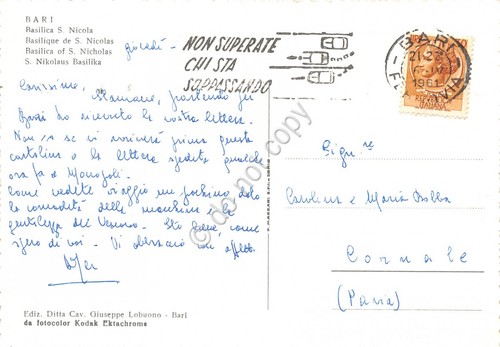 BARI
Basilica S. Nicola
Basilique de S. Nicolas
Basilica of S. Nicholas
S. Nikolaus Basilika
giovedì -
NON SUPERATE
CHI STA
SORPASSANDO
BARI
21-22
1961
FERROVIA
Carissime,
Stamane, partendo per
Bari ho ricevuto la vostra lettera.
Non so se vi arriverà prima questa
cartolina o la lettera spedita qualche
ora fa a Monopoli.
Come vedete viaggio un pochino data
la comodità della macchina e la
gentilezza del . Sto bene, come
spero di voi - Vi abbraccio con affetto.
Sign.re
Carolina e Maria
Cornale
(Parma)
Ediz. Ditta Cav. Giuseppe Lobuono - Bari
da fotocolor Kodak Ektachrome
do not copy